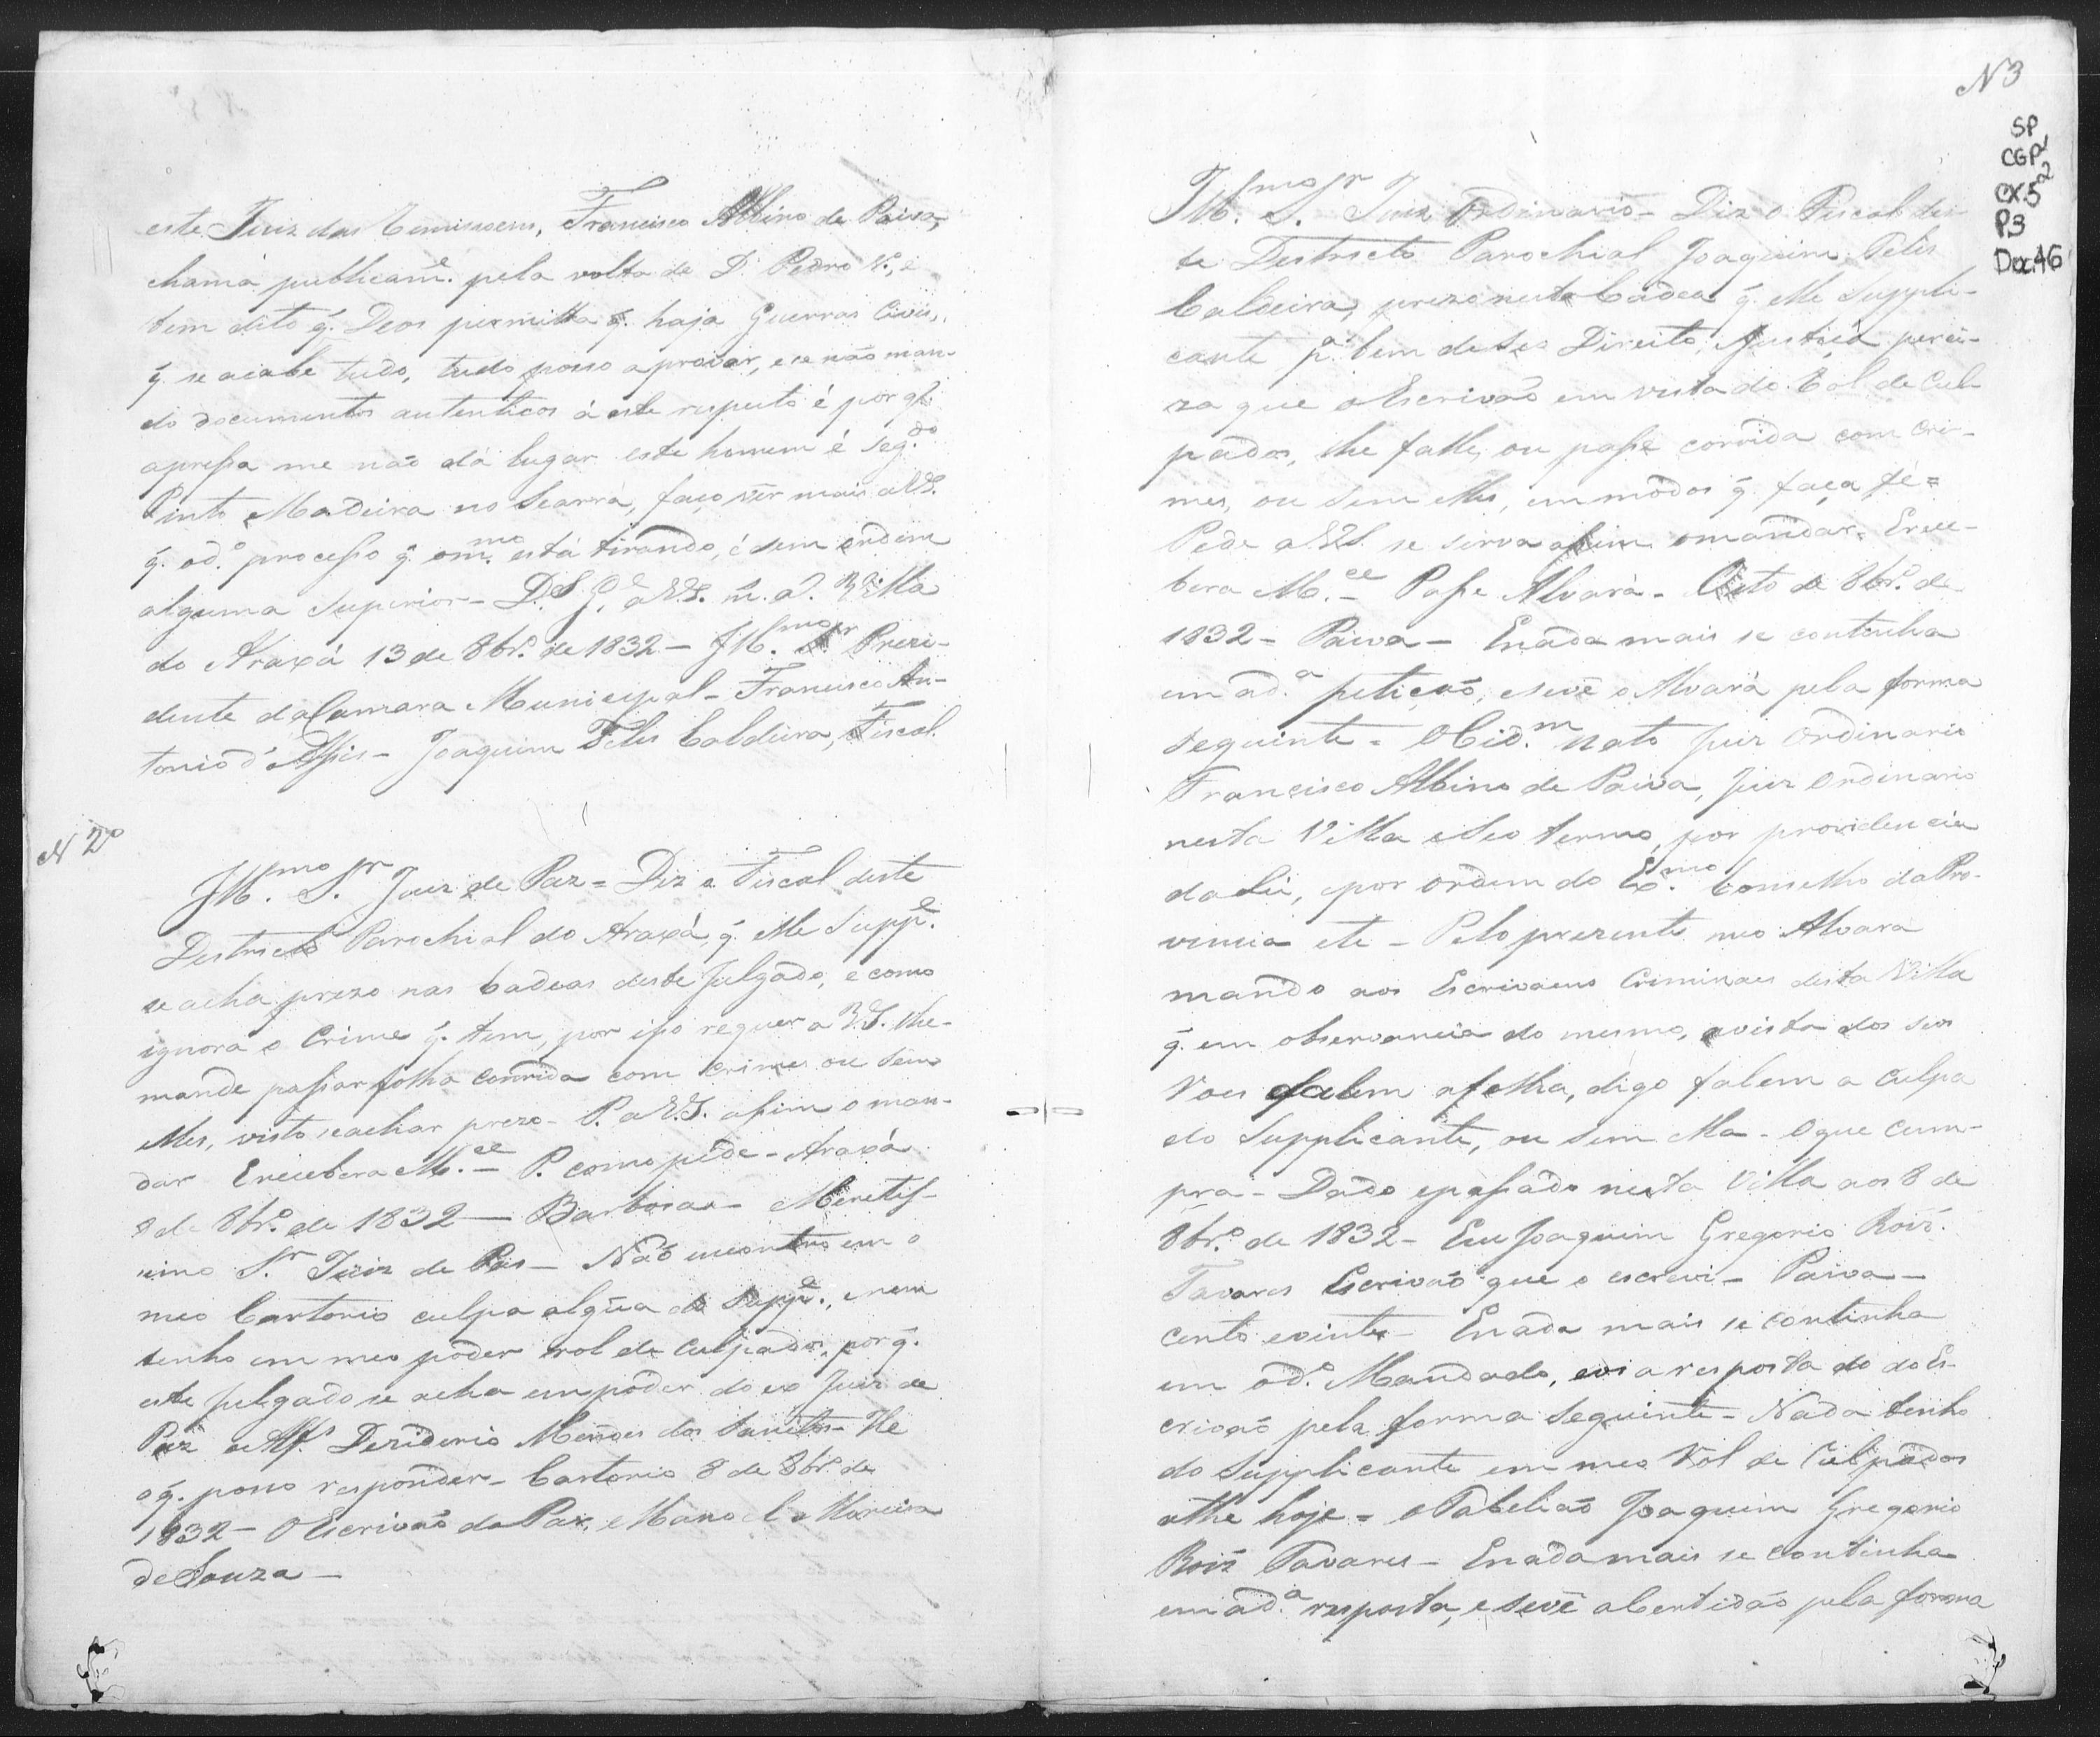 este Juiz das Comissoens, Francisco Albino de Paiva,
chama publicam.e pela volta de D. Pedro 1.º, e
tem dito q. Deos permitta q. haja Guerras Civis,
q. se acabe tudo, tudo posso aprovar, e se não man-
do documentos autenticos á este respeito é por q.
apreſsa me não dá lugar este homem é Seg.do
Pinto Madeira no Searrá, faço vêr mais a V.S.
q. od.º proceſso q. om.mo está tirando, é sem ordem
alguma superior - D.s G.e a V.S. m. a. Villa
do Araxá 13 de 8br.º de 1832 - Ill.mo Sr. Prezi-
dente da Camara Municipal - Francisco An-
tonio d'Aſsis - Joaquim Teles Caldeira, Fiscal.
N 2º
Ill.mo S.r Juiz de Paz = Diz o Fiscal deste
Destricto Parochial do Araxá, q. elle Supp.e
se acha prezo nas Cadeas deste Julgado, e como
ignora o Crime q. tem, por iſso requer a V.S. lhe
mande paſsar folha corrida com crimes ou sem
elles, visto se achar prezo - P. a V.S. aſsim o man-
dar Erecebera M.ce - P. como pede - Araxá
8 de 8br.º de 1832 - Barboza - Meretiſ-
simo S.r Juiz de Pas - Não encontro em o
meo Cartorio culpa algũa do Supp.e, e nem
tenho em meo poder rol de culpados, por q.
este Julgado se acha em poder do ex Juiz de
Paz o Alf.s Deziderio Mendes dos Santos - He
o q. posso responder - Cartorio 8 de 8br.º de
1832 - O Escrivaõ de Paz, Manoel Moreira
de Souza -
N 3
SP
CGP1
CX.52
P.3
Doc.46
Ill.mo S.r Juiz Ordinario - Diz o Fiscal des-
te Destricto Parochial Joaquim Teles
Caldeira, prezo nesta Cadea q. elle Suppli-
cante p.a bem de Seo Direito, e Justiça perci-
za que o Escrivaõ em vista do Rol de Cul-
pados, lhe falle, ou paſse corrida com cri-
mes, ou sem elles, em modos q. faça fé =
Pede a V.S. se sirva aſsim o mandar. Erece-
bera M.ce - Paſse Alvará - Oito de 8br.º de
1832 - Paiva - Enada mais se continha
em a d.a petição, e se vê o Alvará pela forma
seguinte - O Cid.m nato Juiz Ordinario
Francisco Albino de Paiva, Juiz Ordinario
nesta Villa e Seo termo, por providencia
da Lei, e por ordem do Ex.mo Conselho da Pro-
vincia etc - Pelo prezente meo Alvara
mando aos Escrivaens Criminaes desta Villa
q. em observancia do mesmo, a vista dos seos
Roes falem a folha, digo falem a culpa
do Supplicante, ou sem ella - O que cum-
pra - Dado e paſsado nesta Villa aos 8 de
8br.º de 1832 - Eu Joaquim Gregorio Roiz.
Tavares Escrivaõ que o escrevi - Paiva -
cento evinte - Enada mais se continha
em o d.º Mandado, e vi a resposta do do Es-
crivaõ pela forma seguinte - Nada tenho
do Supplicante em meo Rol de Culpados
athe hoje = O Tabeliaõ Joaquim Gregorio
Roiz Tavares - Enada mais se continha
em a d.a resposta, e se vê a Certidão pela forma